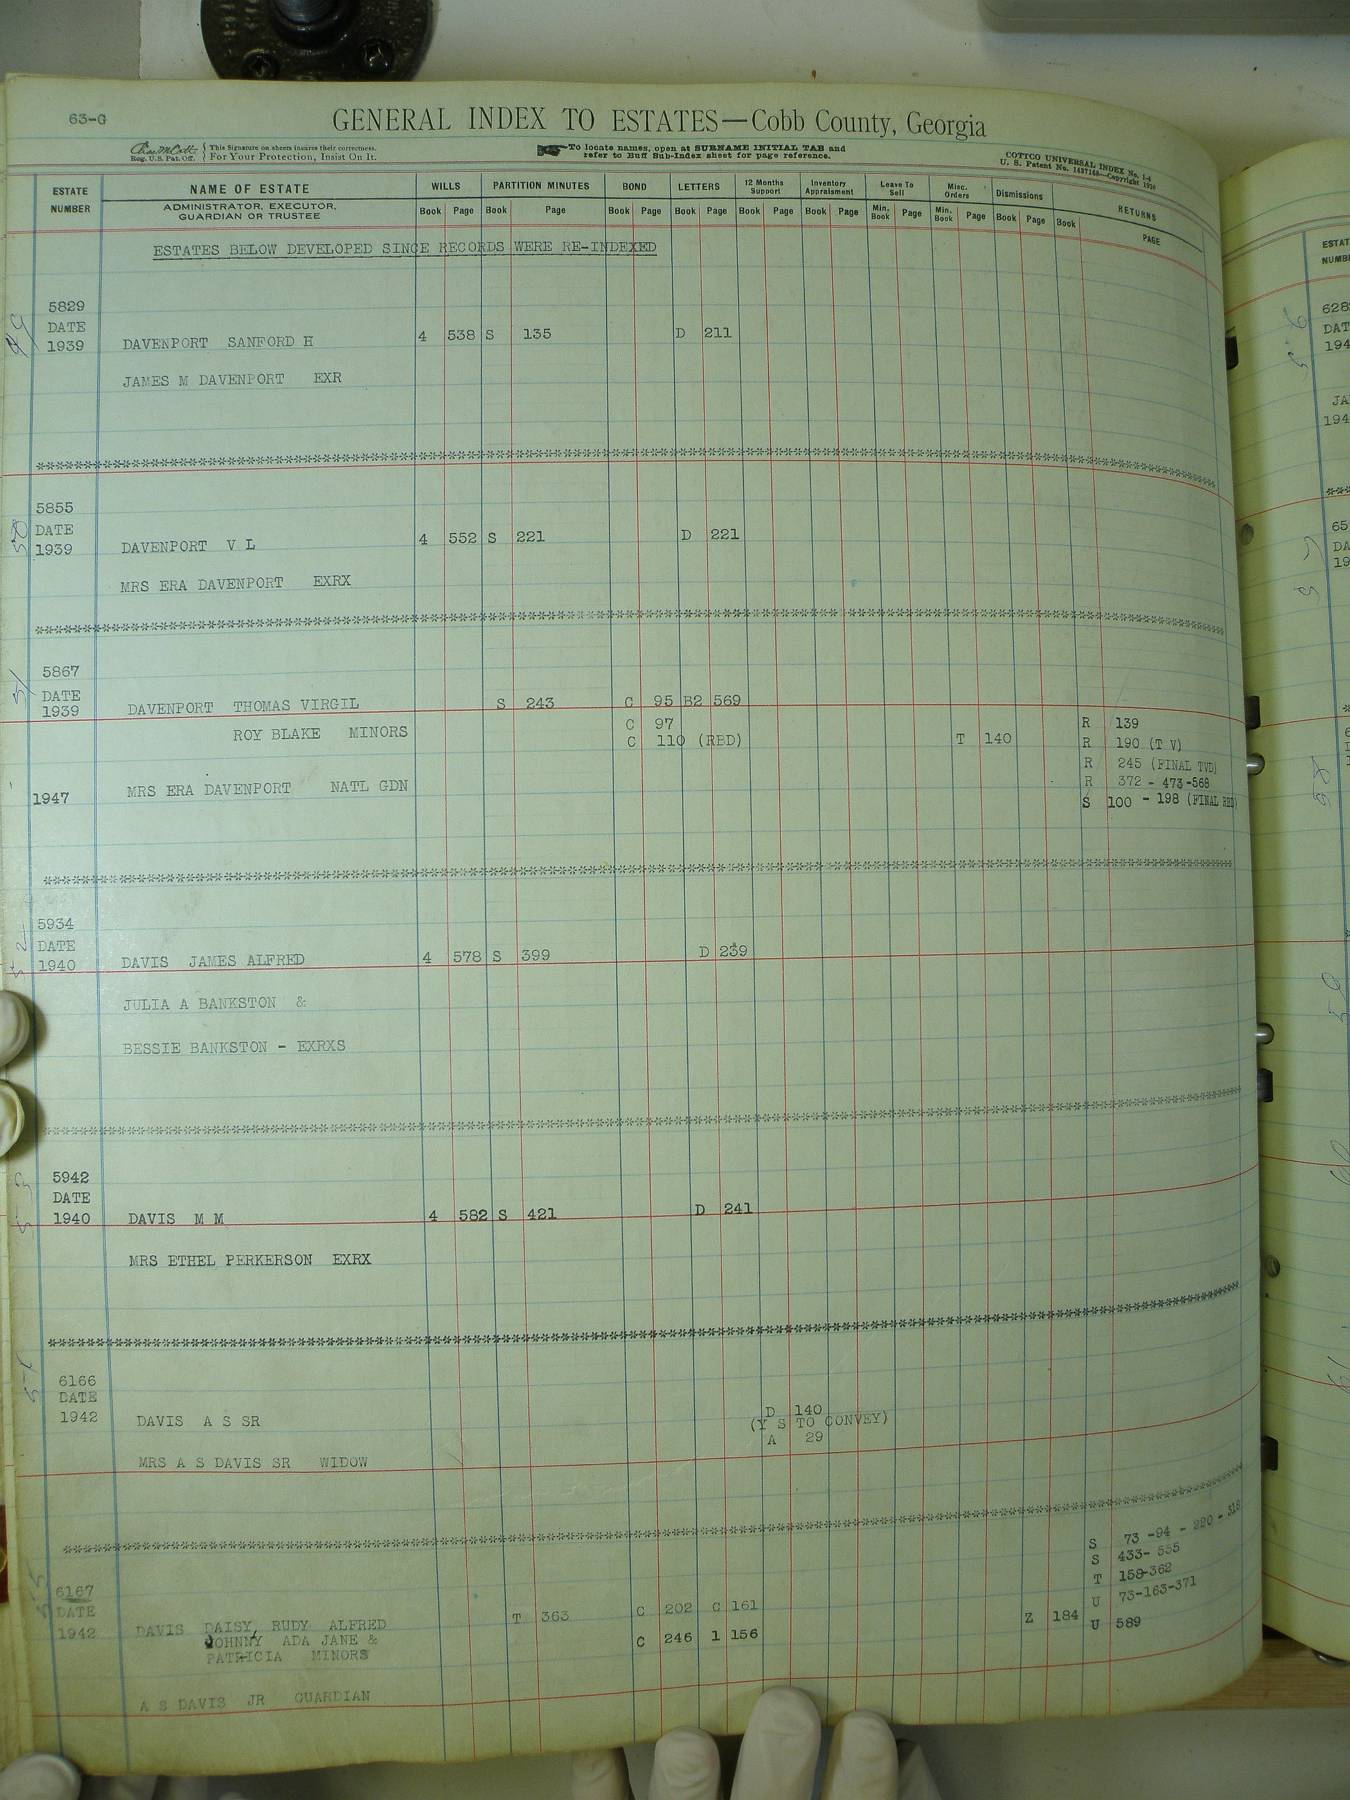 63-G
GENERAL INDEX TO ESTATES—Cobb County, Georgia
Reg. U.S. Pat. Off. { This Signature on sheets insures their correctness. For Your Protection, Insist On It.
To locate names, open at SURNAME INITIAL TAB and
refer to Buff Sub-Index sheet for page reference.
COTTCO UNIVERSAL INDEX No. 1-4
U. S. Patent No. 1437146—Copyright 1936
ESTATE NUMBER NAME OF ESTATE WILLS PARTITION MINUTES BOND LETTERS 12 Months Support Inventory Appraisment Leave To Sell Misc. Orders Dismissions RETURNS
ADMINISTRATOR, EXECUTOR, GUARDIAN OR TRUSTEE Book Page Book Page Book Page Book Page Book Page Book Page Min. Book Page Min. Book Page Book Page Book PAGE
ESTATES BELOW DEVELOPED SINCE RECORDS WERE RE-INDEXED
5829
DATE
1939 DAVENPORT SANFORD H 4 538 S 135 D 211
JAMES M DAVENPORT EXR
5855
50 DATE
1939 DAVENPORT V L 4 552 S 221 D 221
MRS ERA DAVENPORT EXRX
5867
51 DATE
1939 DAVENPORT THOMAS VIRGIL S 243 C 95 B2 569
C 97 R 139
ROY BLAKE MINORS C 110 (RBD) T 140 R 190 (T V)
R 245 (FINAL TVD)
MRS ERA DAVENPORT NATL GDN R 372 - 473-568
1947 S 100 - 198 (FINAL RBD)
5934
52 DATE
1940 DAVIS JAMES ALFRED 4 578 S 399 D 239
JULIA A BANKSTON &
BESSIE BANKSTON - EXRXS
5942
53 DATE
1940 DAVIS M M 4 582 S 421 D 241
MRS ETHEL PERKERSON EXRX
6166
DATE
D 140
1942 DAVIS A S SR (Y S TO CONVEY)
A 29
MRS A S DAVIS SR WIDOW
S 73 -94 - 220 - 318
S 433- 555
T 158-362
6167 U 73-163-371
55 DATE T 363 C 202 C 161 Z 184 U 589
1942 DAVIS DAISY, RUDY ALFRED
JOHNNY ADA JANE & C 246 1 156
PATRICIA MINORS
A S DAVIS JR GUARDIAN
ESTAT
NUMBE
56
628
DAT
194
JA
194
65
DA
19
58
59